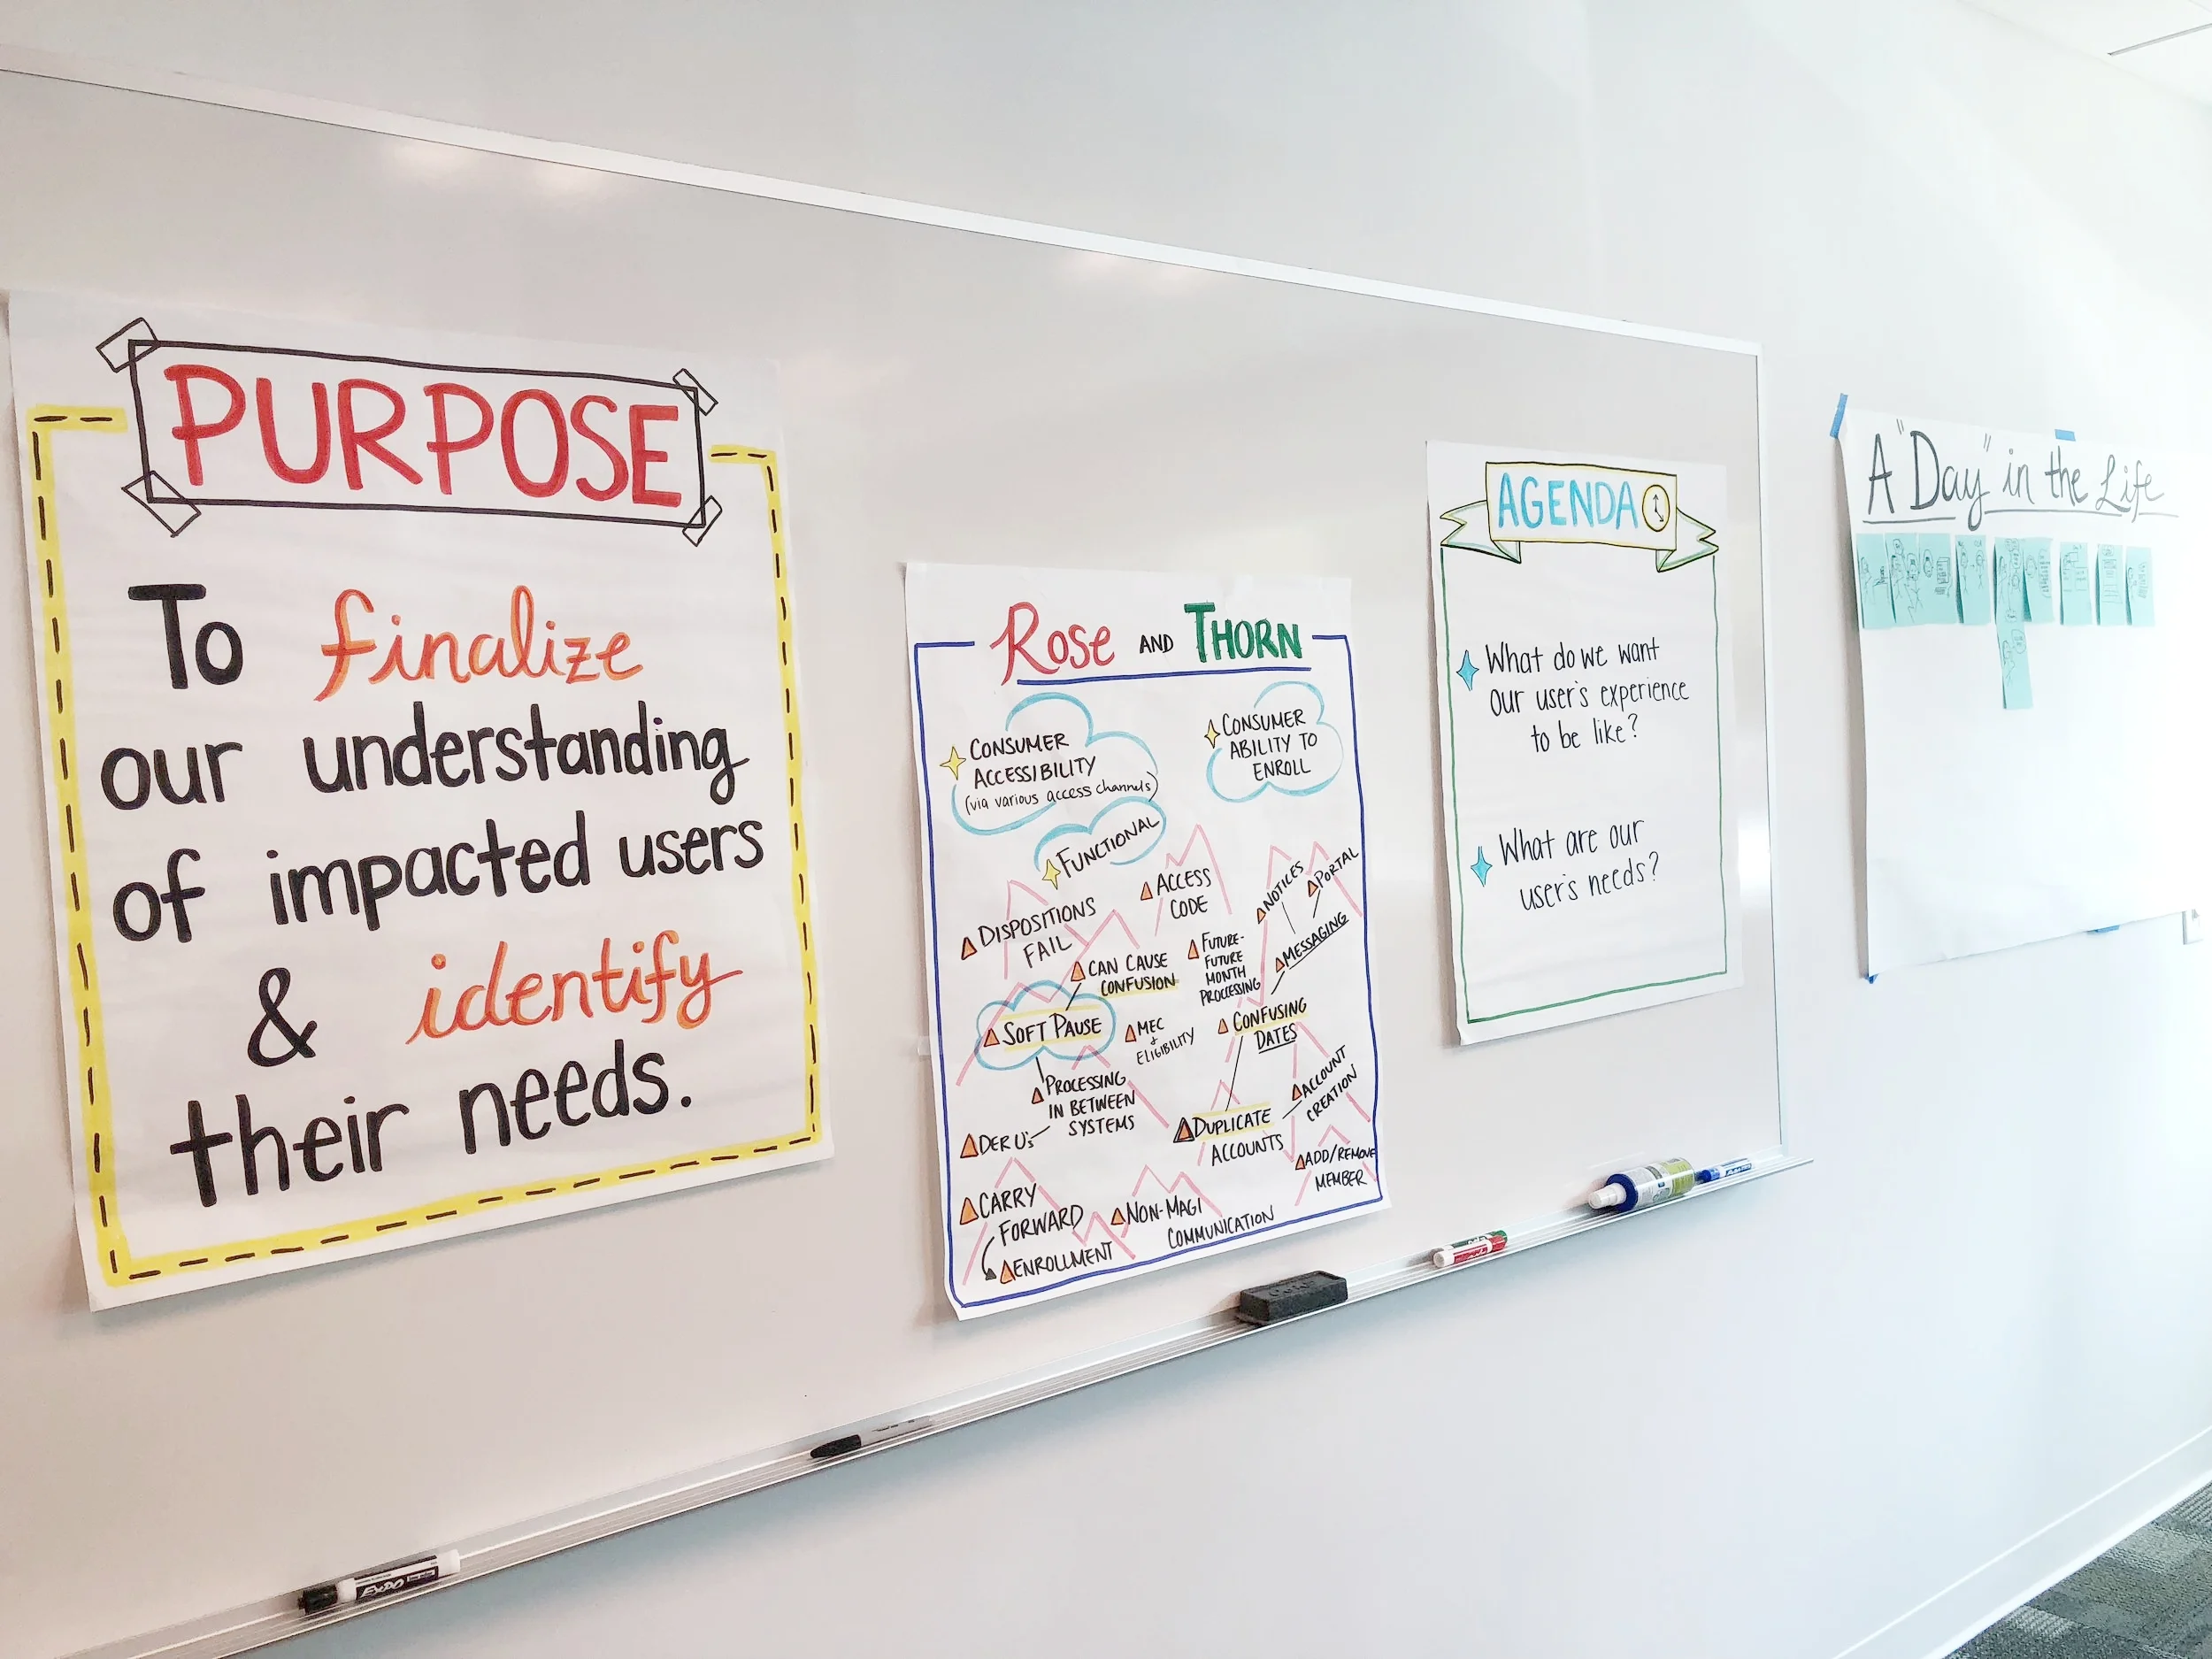 PURPOSE
To finalize
our understanding
of impacted users
& identify
their needs.
ROSE AND THORN
CONSUMER
ACCESSIBILITY
(via various access channels)
CONSUMER
ABILITY TO
ENROLL
FUNCTIONAL
DISPOSITIONS
FAIL
ACCESS
CODE
NOTICES
PORTAL
MESSAGING
CAN CAUSE
CONFUSION
FUTURE-
FUTURE
MONTH
PROCESSING
SOFT PAUSE
MEC
+
ELIGIBILITY
CONFUSING
DATES
PROCESSING
IN BETWEEN
SYSTEMS
DER U's
DUPLICATE
ACCOUNTS
ACCOUNT
CREATION
ADD/REMOVE
MEMBER
CARRY
FORWARD
ENROLLMENT
NON-MAGI
COMMUNICATION
AGENDA
What do we want
our user's experience
to be like?
What are our
user's needs?
A "Day" in the Life
EXPO